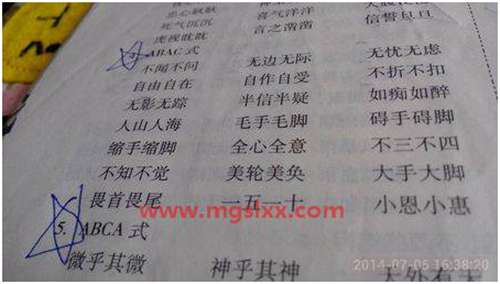 死气沉沉 喜气洋洋
虎视眈眈 言之凿凿 信誓旦旦
ABAC 式
不闻不问 无边无际 无忧无虑
自由自在 自作自受 不折不扣
无影无踪 半信半疑 如痴如醉
人山人海 毛手毛脚 碍手碍脚
缩手缩脚 全心全意 不三不四
不知不觉 美轮美奂 大手大脚
畏首畏尾 一五一十 小恩小惠
www.mgslxx.com
5. ABCA 式
2014-07-05 16:38:20
微乎其微 神乎其神 天外有天